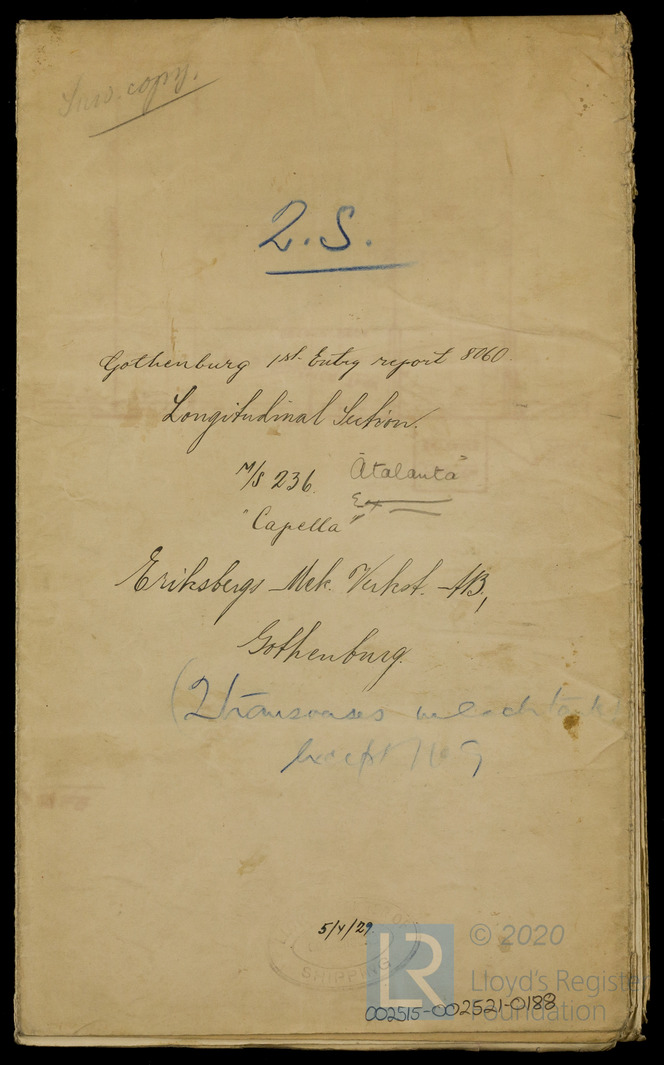 copy.
2.S.
Gothenburg 1st. Entry report 8060.
Longitudinal Section.
M/S 236. "Atalanta"
Ex
"Capella"
Eriksbergs Mek. Verkst. AB,
Gothenburg.
(2 transverses in each tank
except No 5
5/4/29.
SHIPPING
LR © 2020
Lloyd's Register
Foundation
002515-002521-0188